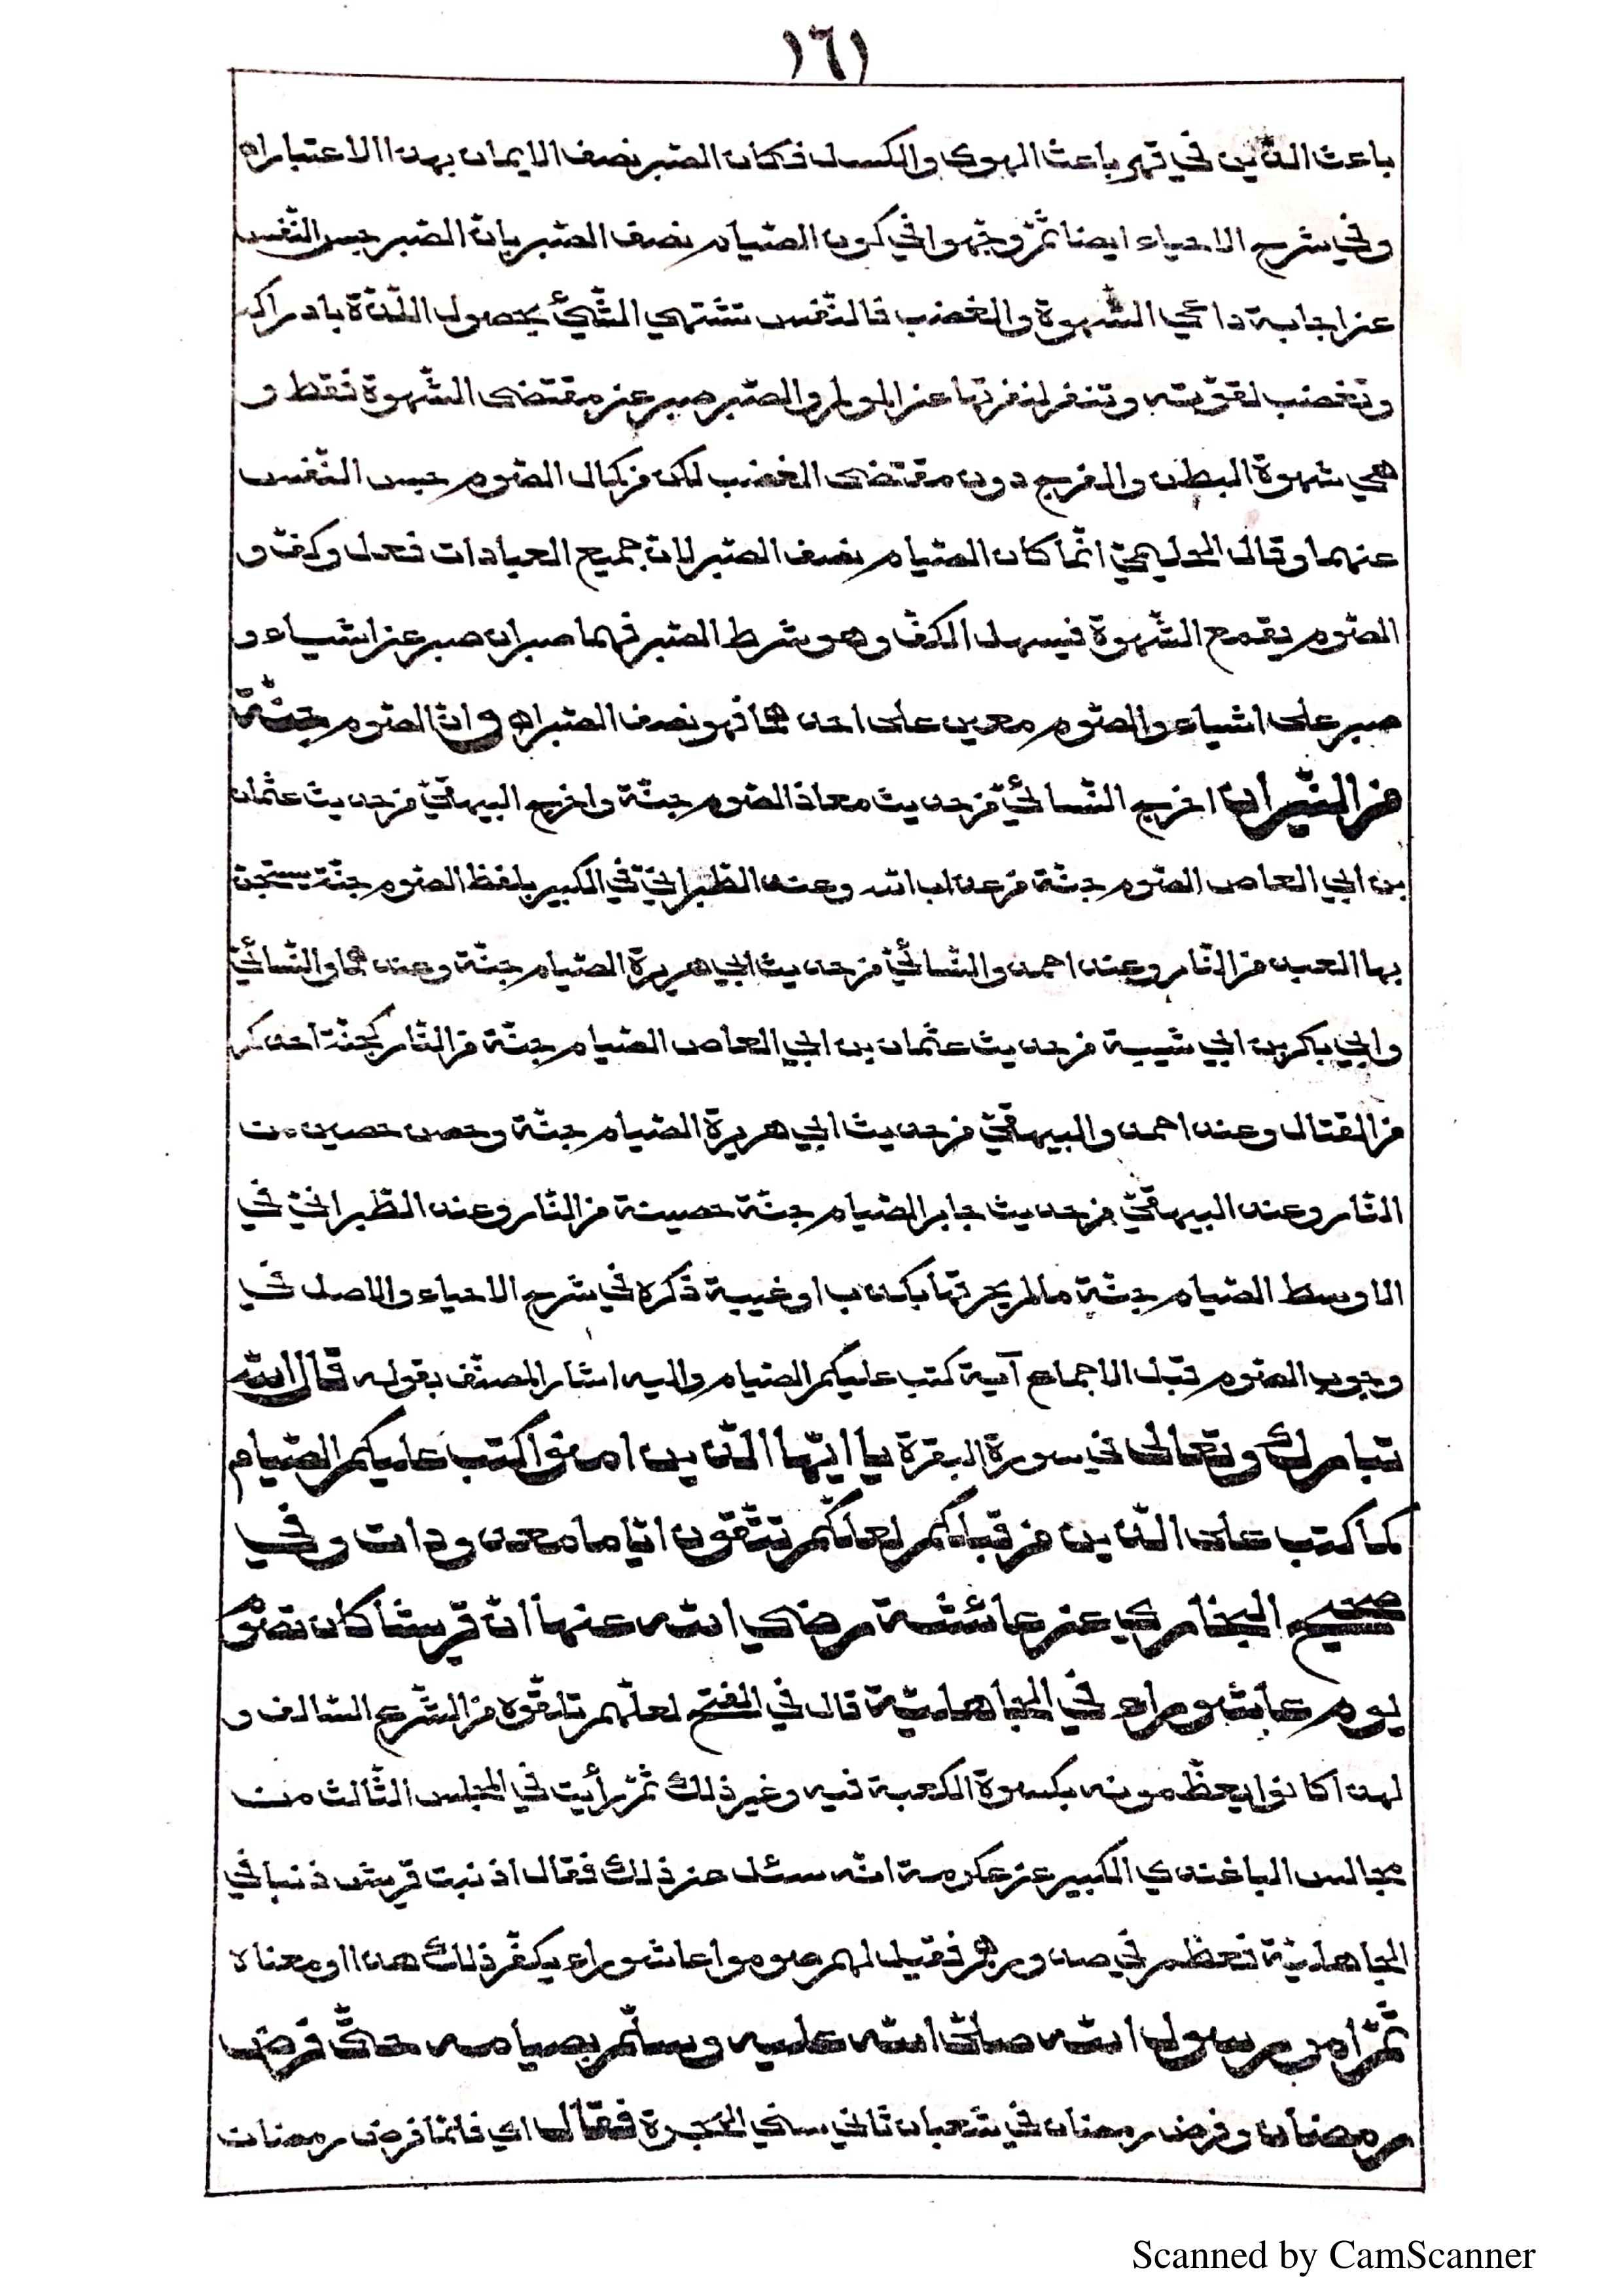 ١٦١
باعث الدّين في قهر باعث الهوى والكسل فكان الصّبر نصف الايمان بهذا الاعتبار اه
وفي شرح الاحياء ايضا ثمّ وجّهوا في كون الصّيام نصف الصّبر بانّ الصّبر حبس النّفس
عن اجابة داعي الشّهوة والغضب فالنّفس تشتهي الشّيئ بحصول اللّذّة بادراكه
وتغضب لفوّته وتنفر لنفرتها عن المولم والصّبر صبر عن مقتضى الشّهوة فقط و
هي شهوة البطن والفرج دون مقتضى الغضب لكن من كمال الصّوم حبس النّفس
عنهما وقال الحليميّ انّما كان الصّيام نصف الصّبر لانّ جميع العبادات فعل وكفّ و
الصّوم يقمع الشّهوة فيسهل الكفّ وهو شرط الصّبر فهما صبران صبر عن اشياء و
صبر على اشياء والصّوم معين على احدهما فهو نصف الصّبر اه وانّ الصّوم جنّة
من النّيران اخرج النّسائيّ من حديث معاذ الصّوم جنّة واخرج البيهقيّ من حديث عثمان
بن ابي العاص الصّوم جنّة من عذاب الله وعند الطّبرانيّ في الكبير بلفظ الصّوم جنّة يستجنّ
بها العبد من النّار وعند احمد والنّسائيّ من حديث ابي هريرة الصّيام جنّة وعندهما والنّسائيّ
وابي بكر بن ابي شيبة من حديث عثمان بن ابي العاص الصّيام جنّة من النّار كجنّة احدكم
من القتال وعند احمد والبيهقيّ من حديث ابي هريرة الصّيام جنّة وحصن حصين من
النّار وعند البيهقيّ من حديث جابر الصّيام جنّة حصينة من النّار وعند الطّبرانيّ في
الاوسط الصّيام جنّة ما لم يخرقها بكذب او غيبة ذكره في شرح الاحياء والاصل في
وجوب الصّوم قبل الاجماع آية كتب عليكم الصّيام واليه اشار المصنّف بقوله قال الله
تبارك وتعالى في سورة البقرة يا ايّها الّذين امنوا كتب عليكم الصّيام
كما كتب على الّذين من قبلكم لعلّكم تتّقون ايّاما معدودات وفي
صحيح البخاري عن عائشة رضي الله عنها انّ قريشا كان تصوم
يوم عاشوراء في الجاهليّة قال في الفتح لعلّهم تلقّوه من الشّرع السّالف و
لهذا كانوا يعظّمونه بكسوة الكعبة فيه وغير ذلك ثمّ رأيت في المجلس الثّالث من
مجالس الباغندي الكبير عن عكرمة انّه سئل عن ذلك فقال اذنبت قريش ذنبا في
الجاهليّة فعظم في صدورهم فقيل لهم صوموا عاشوراء يكفّر ذلك هذا او معناه
ثمّ امر رسول الله صلّى الله عليه وسلّم بصيامه حتّى فرض
رمضان وفرض رمضان في شعبان ثاني سني الهجرة فقال اي فلمّا فرض رمضان
Scanned by CamScanner